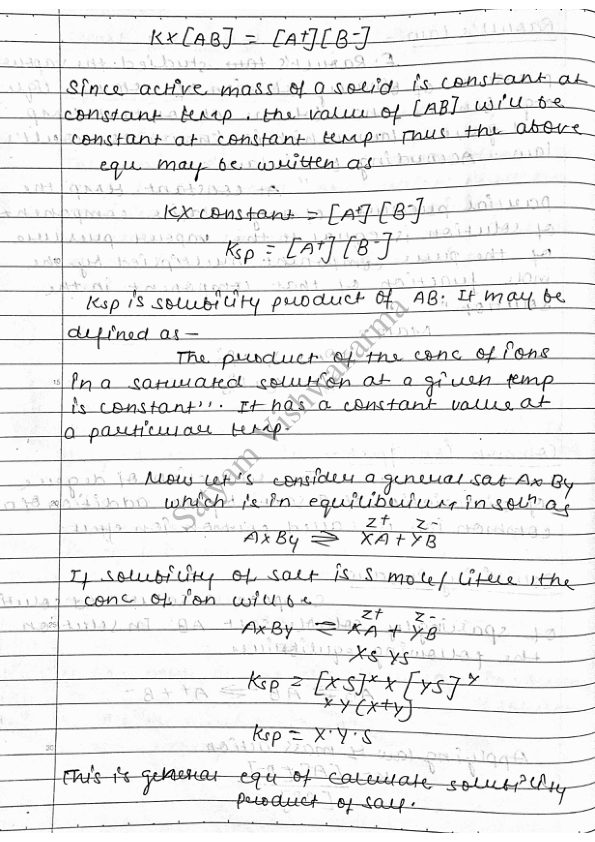 K×[AB] = [A+][B-]
Since active mass of a solid is constant at
constant temp. the value of [AB] will be
constant at constant temp. Thus the above
equ may be written as
K× constant = [A+][B-]
Ksp = [A+][B-]
Ksp is solubility product of AB. It may be
defined as-
The product of the conc of ions
in a saturated solution at a given temp
is constant". It has a constant value at
a particular temp.
Now let's consider a general sat AxBy
which is in equilibrium in soln as
z+ z-
AxBy ⇌ XA + YB
If solubility of salt is S mole/litre, the
conc of ion will be
z+ z-
AxBy ⇌ XA + YB
XS YS
Ksp = [XS]x × [YS]y
x y (x+y)
Ksp = X·Y·S
This is general equ of calculate solubility
product of salt.
Satyam Vishwakarma